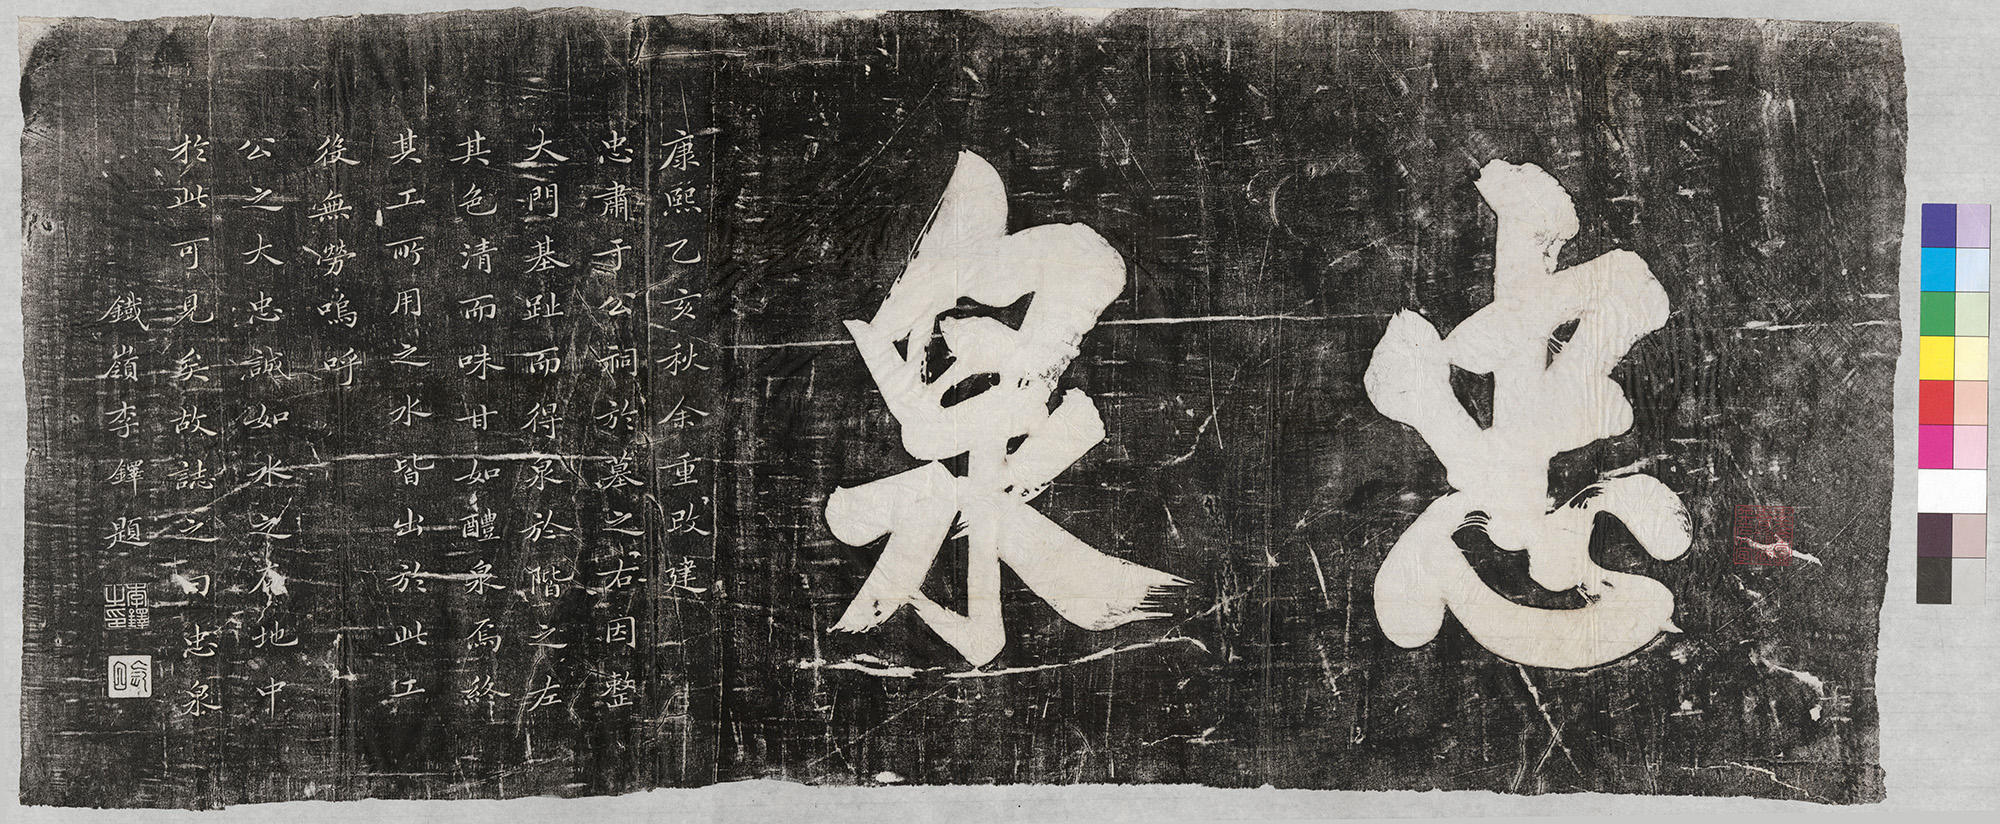 忠泉
康熙乙亥秋余重改建
忠肅于公祠於墓之右因整
大門基趾而得泉於階之左
其色清而味甘如醴泉焉終
其工所用之水皆出於此工
後無勞嗚呼
公之大忠誠如水之在地中
於此可見矣故誌之曰忠泉
鐵嶺李鐸題
李鐸之印